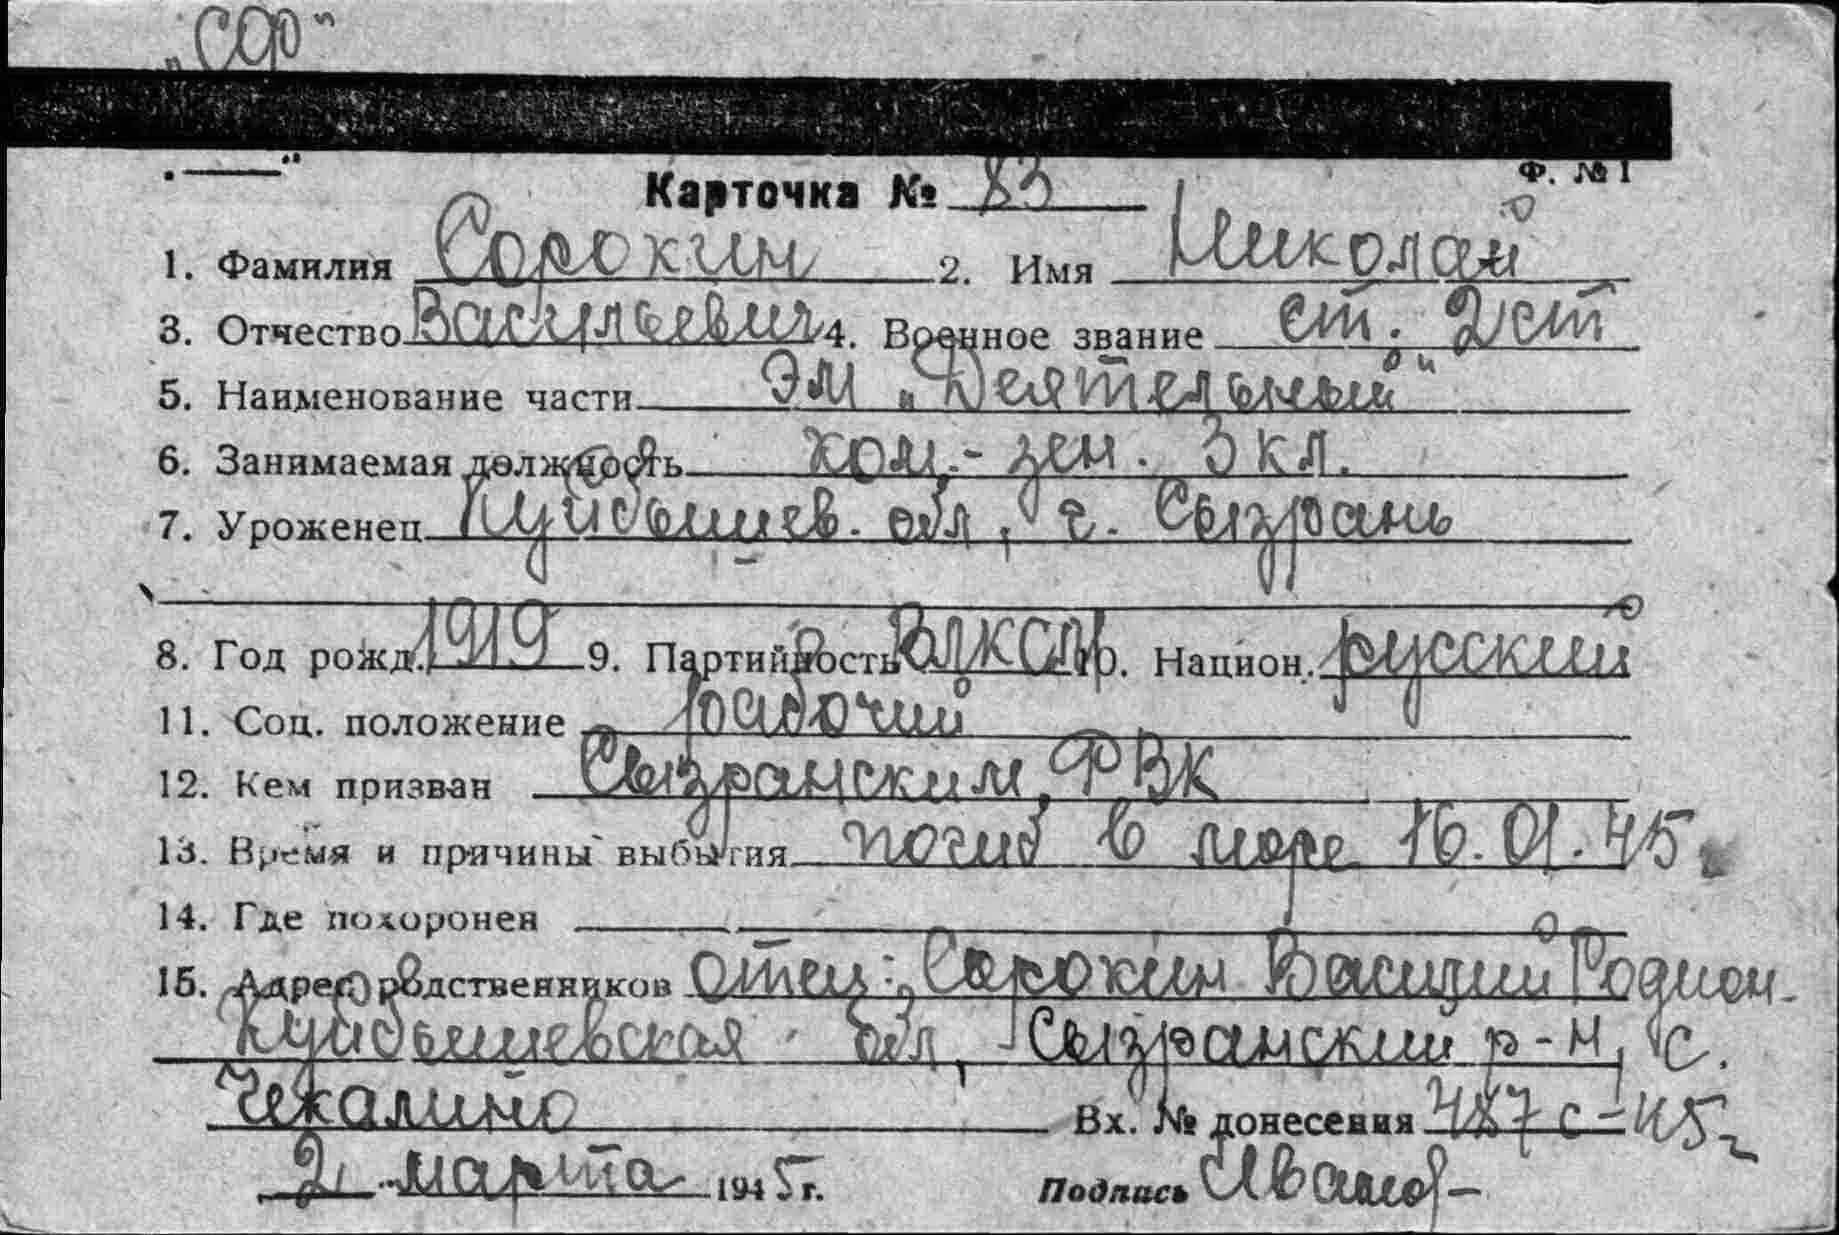 „СФ"
Ф. № 1
Карточка № 83
1. Фамилия Сорокин 2. Имя Николай
3. Отчество Васильевич 4. Военное звание ст. 2 ст
5. Наименование части ЭМ „Деятельный"
6. Занимаемая должность ком.- зен. 3 кл.
7. Уроженец Куйбышев. обл, г. Сызрань
8. Год рожд. 1919 9. Партийность ВЛКСМ 10. Национ. русский
11. Соц. положение рабочий
12. Кем призван Сызранским РВК
13. Время и причины выбытия погиб в море 16.01.45
14. Где похоронен
15. Адрес родственников отец: Сорокин Василий Родион.
Куйбышевская обл, Сызранский р-н, с.
Чекалино
Вх. № донесения 487 с-45г
2 марта 1945 г. Подпись Иванов